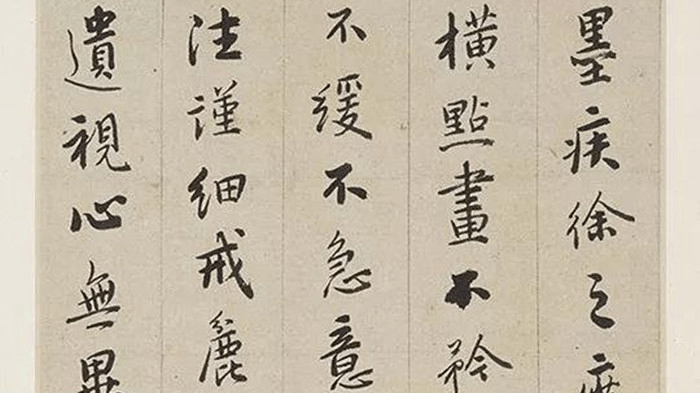 墨疾徐之
橫點畫不矜
不緩不急意
注謹細戒麄
遺視心無異